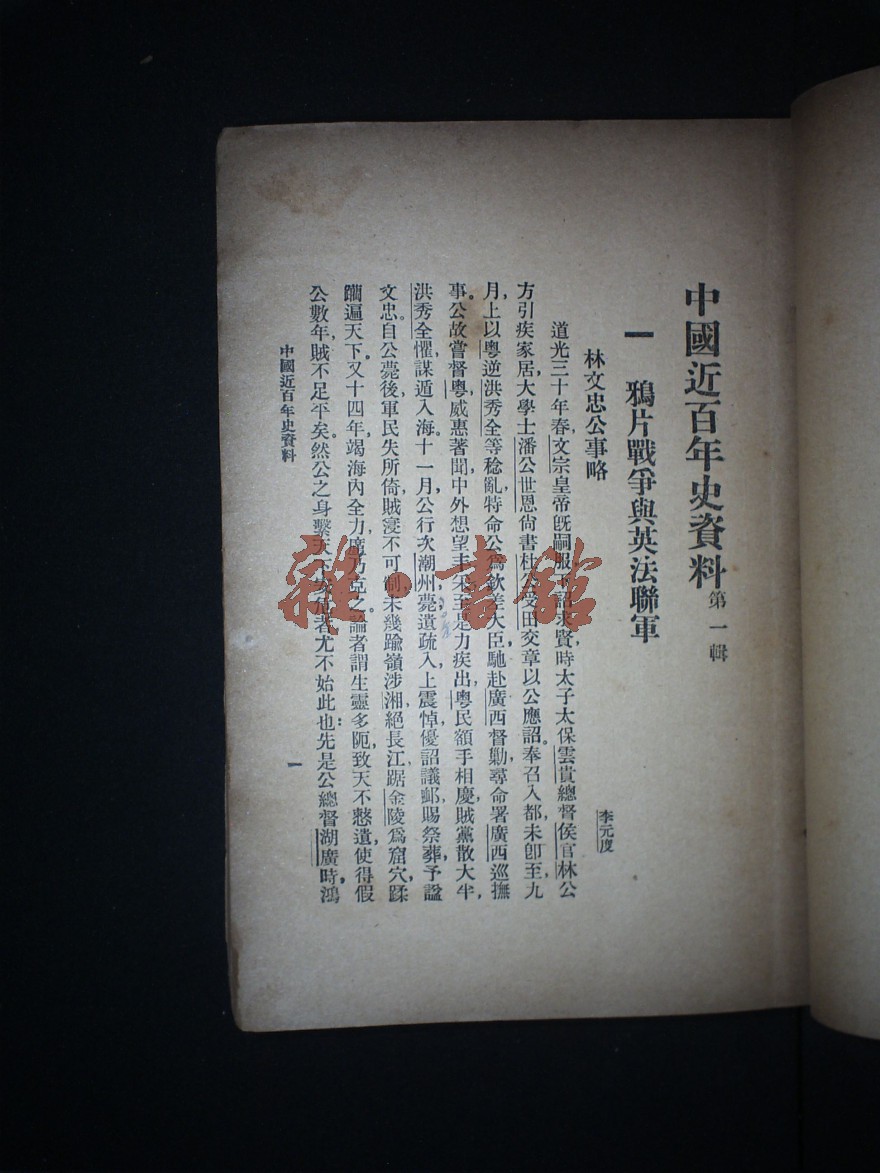 中國近百年史資料 第一輯
一 鴉片戰爭與英法聯軍
林文忠公事略
李元度
道光三十年春，文宗皇帝旣嗣服，下詔求賢，時太子太保雲貴總督侯官林公
方引疾家居，大學士潘公世恩尙書杜公受田交章以公應詔。奉召入都，未卽至，九
月，上以粵逆洪秀全等稔亂，特命公爲欽差大臣，馳赴廣西督勦，尋命署廣西巡撫
事。公故嘗督粵，威惠著聞，中外想望丰采，至是力疾出，粵民額手相慶，賊黨散大半，
洪秀全懼，謀遁入海，十一月，公行次潮州，薨，遺疏入，上震悼，優詔議卹，賜祭葬，予諡
文忠。自公薨後，軍民失所倚，賊寖不可制，未幾踰嶺涉湘，絕長江，踞金陵爲窟穴，蹂
躪遍天下。又十四年，竭海內全力，廑乃克之。論者謂生靈多阨，致天不憖遺，使得假
公數年，賊不足平矣。然公之身繫天下安危者，尤不始此也：先是公總督湖廣時，鴻
中國近百年史資料
一
雜·書館